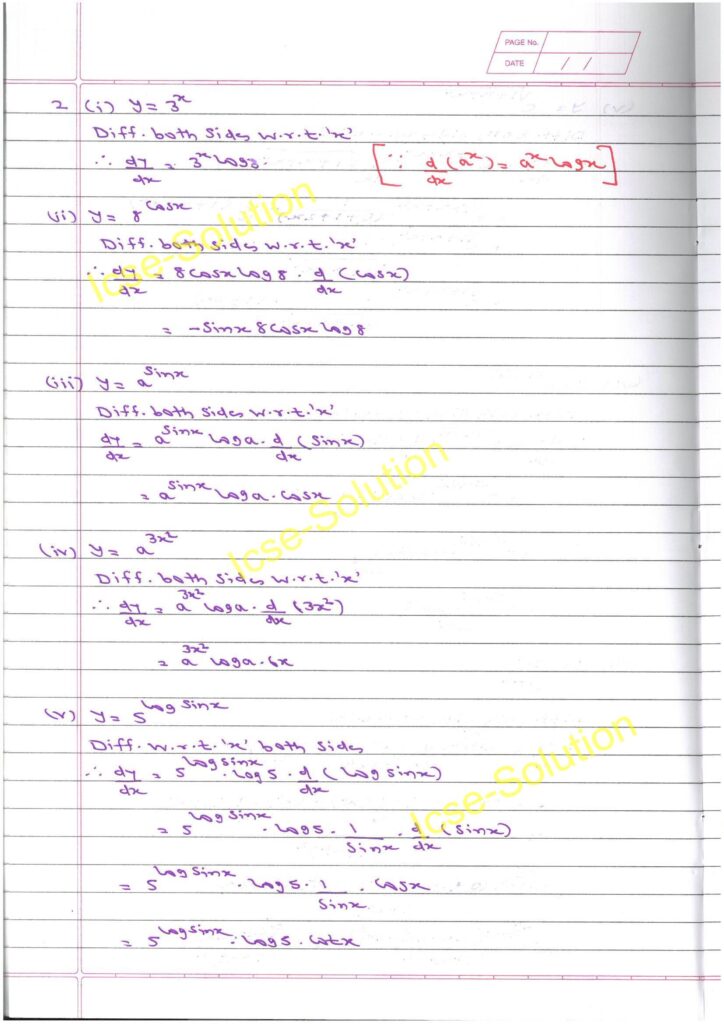 PAGE No.
DATE / /
2 (i) y = 3^x
Diff. both sides w.r.t. 'x'
∴ dy/dx = 3^x log3. [∵ d/dx (a^x) = a^x log x]
(ii) y = 8^cosx
Diff. both sides w.r.t. 'x'
∴ dy/dx = 8cosx log8 · d/dx (cosx)
= -sinx 8cosx log8
(iii) y = a^sinx
Diff. both sides w.r.t. 'x'
dy/dx = a^sinx loga · d/dx (sinx)
= a^sinx loga · cosx
(iv) y = a^3x²
Diff. both sides w.r.t. 'x'
∴ dy/dx = a^3x² loga · d/dx (3x²)
= a^3x² loga · 6x
(v) y = 5^log sinx
Diff. w.r.t. 'x' both sides
∴ dy/dx = 5^log sinx · log5 · d/dx (log sinx)
= 5^log sinx · log5 · 1/sinx · d/dx (sinx)
= 5^log sinx · log5 · 1/sinx · cosx
= 5^log sinx · log5 · cotx
Icse-Solution
Icse-Solution
Icse-Solution